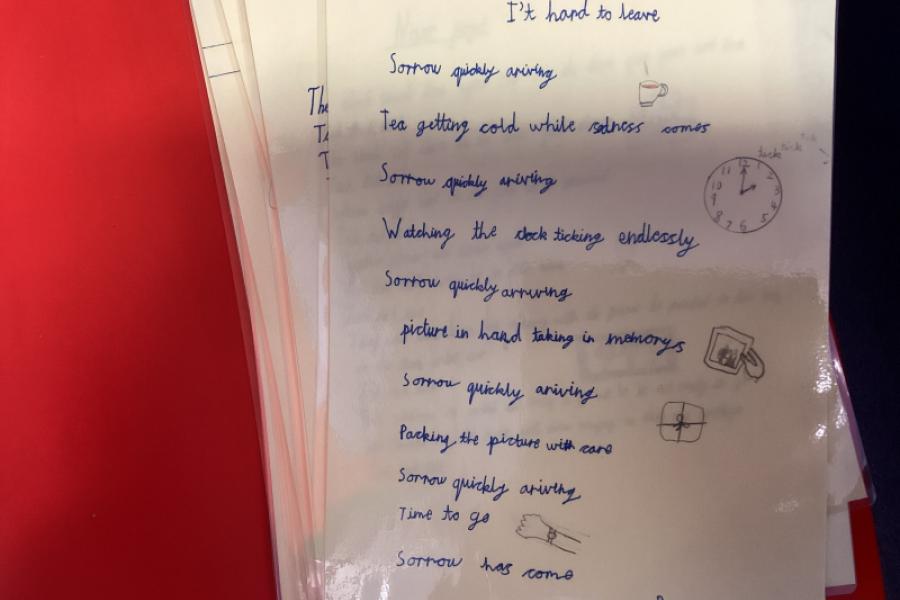 I't hard to leave
Sorrow quickly ariving
Tea getting cold while sadness comes
Sorrow quickly ariving
tick tick tick
12 1 2 3 4 5 6 7 8 9 10 11
Watching the clock ticking endlessly
Sorrow quickly arruving
picture in hand taking in memorys
Sorrow quickly ariving
Packing the picture with care
Sorrow quickly ariving
Time to go
Sorrow has come